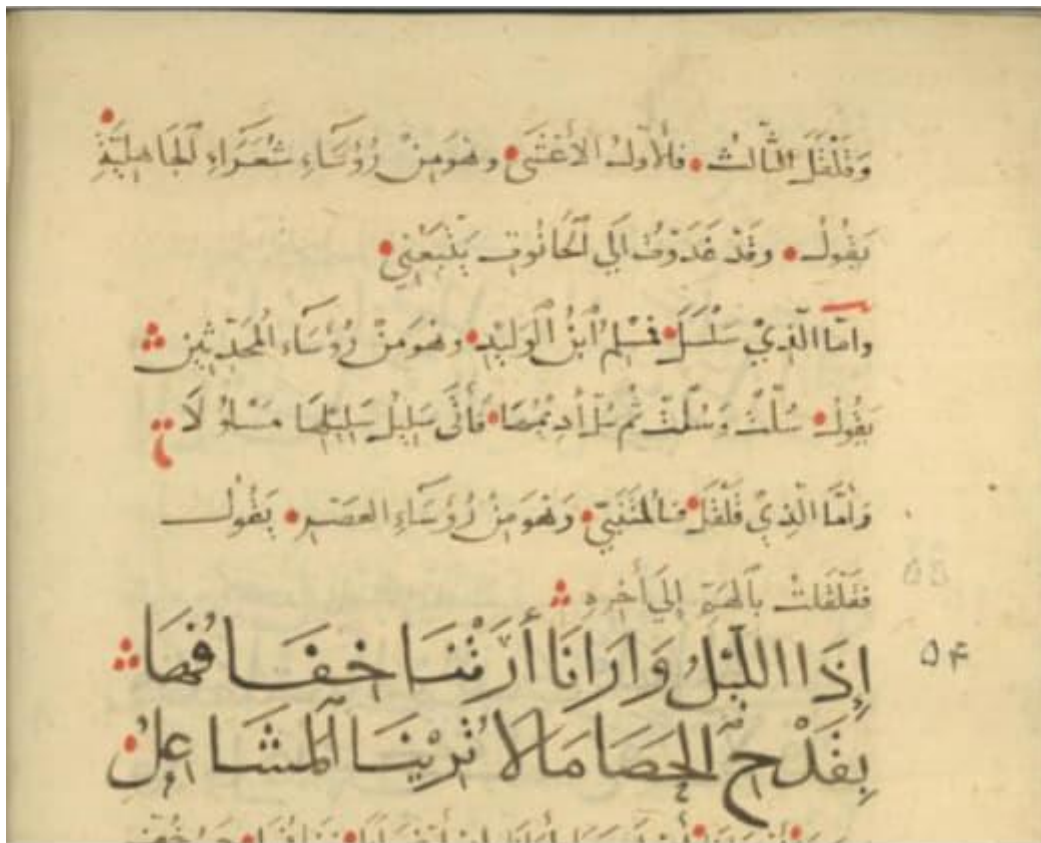 وَقَلْقَلَ الثَّالِثُ • فالأوّلُ الأعْشَى • وهُوَ مِنْ رُؤَسَاءِ شُعَرَاءِ الجَاهِليَّةِ •
يَقُولُ • وقَدْ غَدَوْتُ الَي الحَانُوتِ يَتْبَعُنِي •
وامّا الّذِيْ سَلْسَلَ • فمُسْلِمُ ابْنُ الْوَلِيْدِ • وهُوَ مِنْ رُؤَسَاءِ المُحَدَثِين
يَقُولُ • سُلَّتْ وَسُلَّتْ ثُمَّ سُلّ سَلِيْلُهَا • فَأتَى سَلِيْلُ سَلِيْلِهَا مَسْلُولَا
وَأمَّا الّذِيْ قَلْقَلَ • فالمُتَنَبّي • وَهُوَ مِنْ رُؤَسَاءِ العَصْرِ • يَقُولُ
فقَلْقَلْتُ بالهَمِّ إلَي أَخْرِهِ
إِذَا اللَّيْلُ وَارَانَا أَرَتْنَا خِفَافُهَا
۵۴
بِقَدْحِ الحَصَا مَا لَا تُرِيْنَا المَشَاعِلُ •